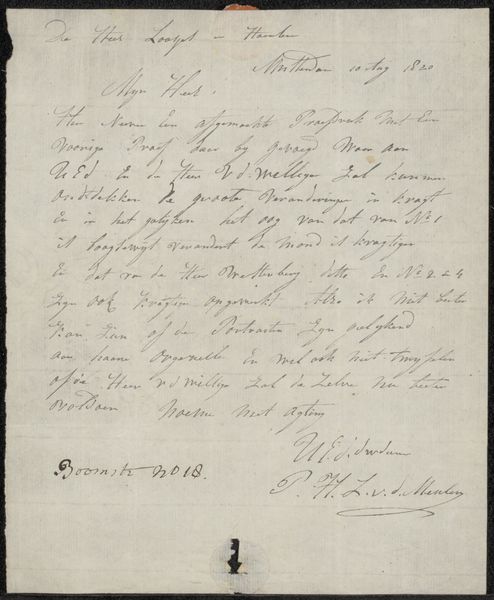 De Heer Loosjes - Haarlem
Amsterdam 10 Aug 1820
Myn Heer,
Hier Nevens Een afgemaakte Proefdruk met Een
voorige Proef daar by gevoegd Waar aan
UEd En de Heer v d. Willigen Zal kunnen
ontdekken de groote veranderingen in kragt
En in het gelyken het oog van dat van No 1
is verandert de mond is kragtiger
En dat van de Heer dito En No 2 & 4
Zyn ook kragtiger opgewerkt Alzo ik niet beter
kan Zien of de Portraiten Zyn gelykend
aan hunne Origeneele En wel ook niet twyfelen
of de Heer v d Willigen Zal de Zelve nu beter
voldoen Noeme met agting
UEd. dw dienaar
P. H. L. v. d. Meulen
Boomstr No 18.